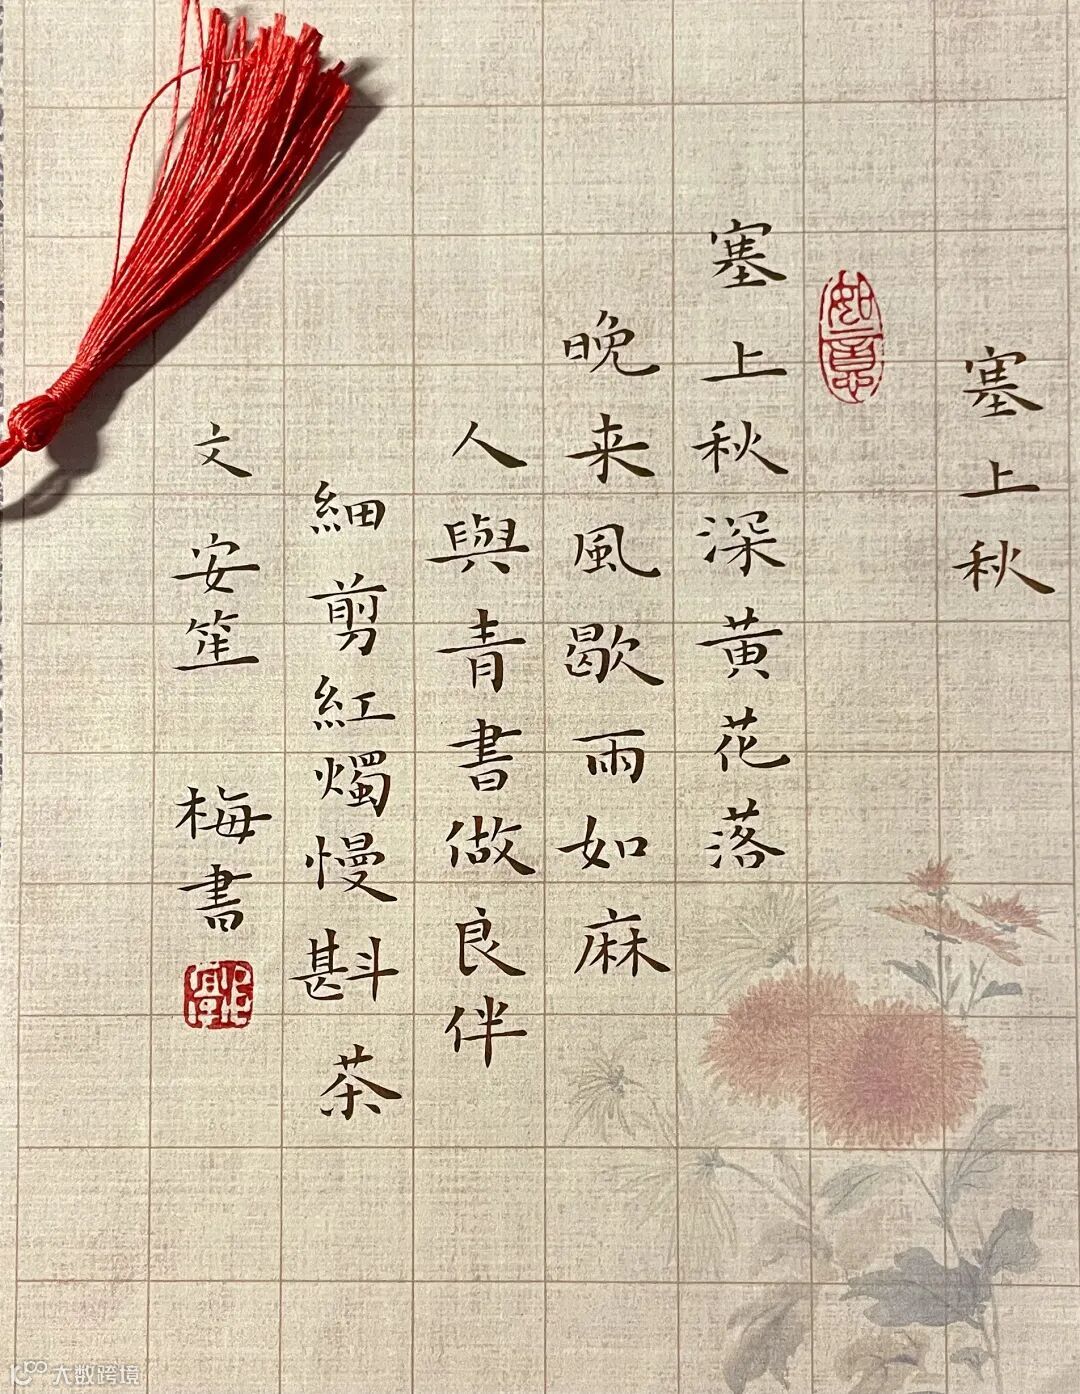 塞上秋
如意
塞上秋深黄花落
晚来風歇雨如麻
人與青書做良伴
細剪紅燭慢斟茶
文 安笙 梅書
大数跨境